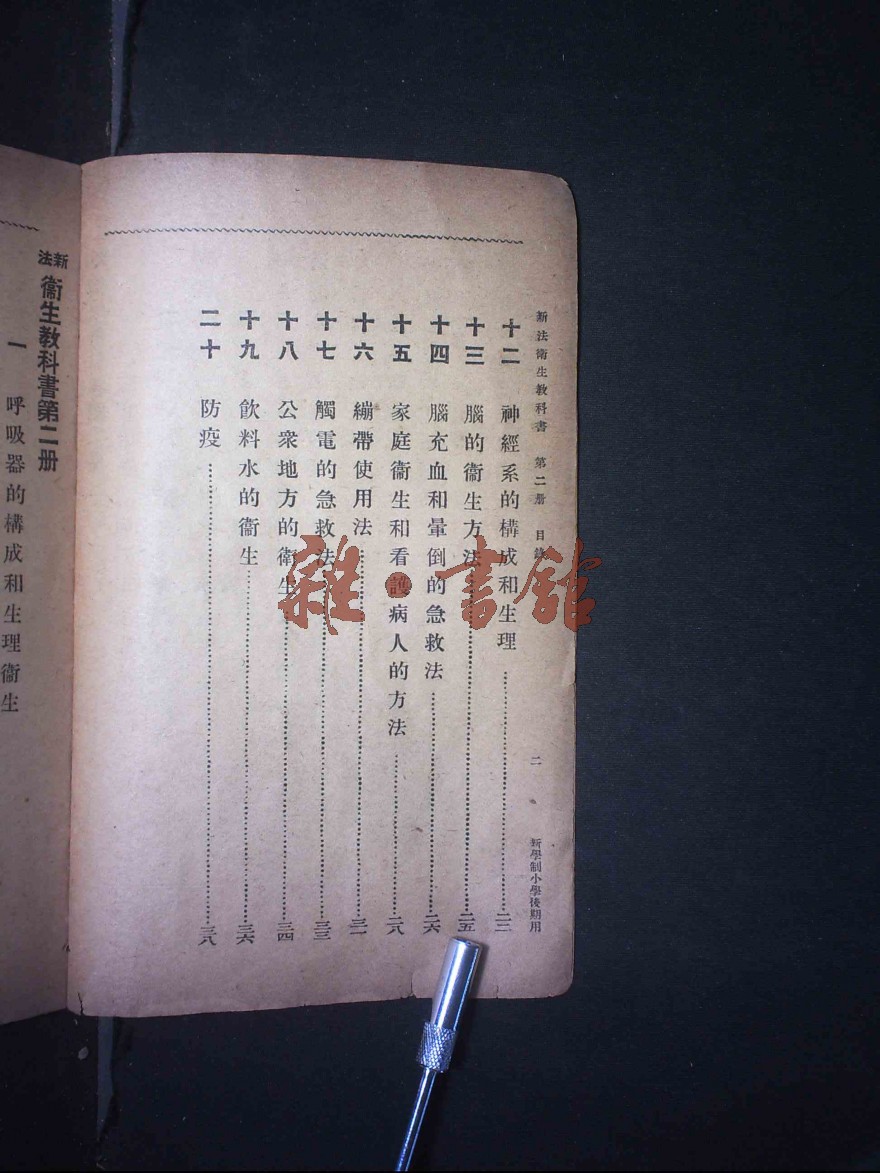 新法衞生教科書 第二册 目錄 二 新學制小學後期用
十二 神經系的構成和生理 二三
十三 腦的衞生方法 二五
十四 腦充血和暈倒的急救法 二六
十五 家庭衞生和看護病人的方法 二八
十六 繃帶使用法 三一
十七 觸電的急救法 三三
十八 公衆地方的衞生 三四
十九 飲料水的衞生 三六
二十 防疫 三八
新法衞生教科書第二册
一 呼吸器的構成和生理衞生
雜·書館